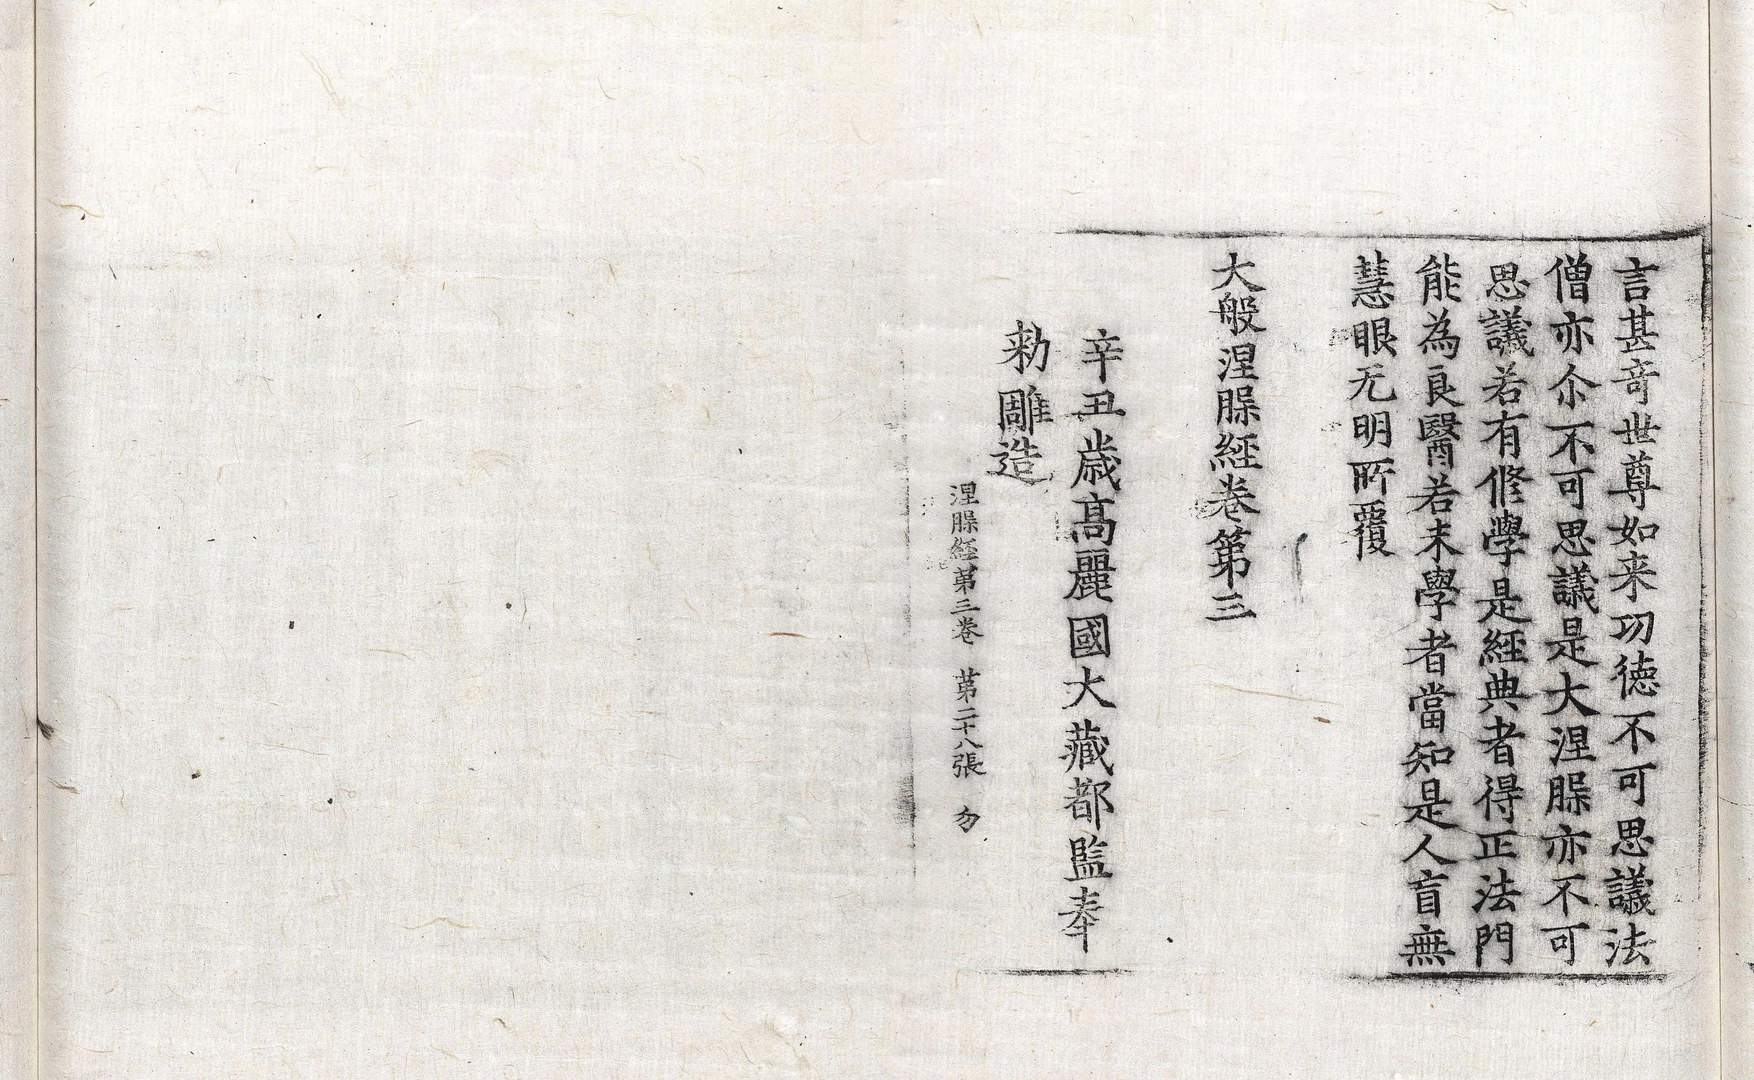 言甚竒世尊如来功德不可思議法
僧亦尒不可思議是大涅槃亦不可
思議若有修學是經典者得正法門
能為良醫若未學者當知是人盲無
慧眼无明所覆
大般涅槃經卷第三
辛丑歲高麗國大藏都監奉
勑雕造
涅槃經第三卷 第二十八張 勿